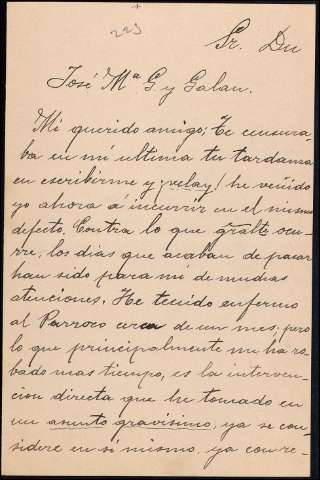 223
Sr. Dn
José Mª G. y Galan.
Mi querido amigo; Te censura-
ba en mi ultima tu tardanza
en escribirme y ¡velay! he venido
yo ahora á incurrir en el mismo
defecto. Contra lo que gralte ocu-
rre, los dias que acaban de pasar
han sido para mi de muchas
atenciones. He tenido enfermo
al Parroco cerca de un mes, pero
lo que principalmente me ha ro-
bado mas tiempo, es la interven-
cion directa que he tomado en
un asunto gravisimo, ya se con-
sidere en si mismo, ya con re-